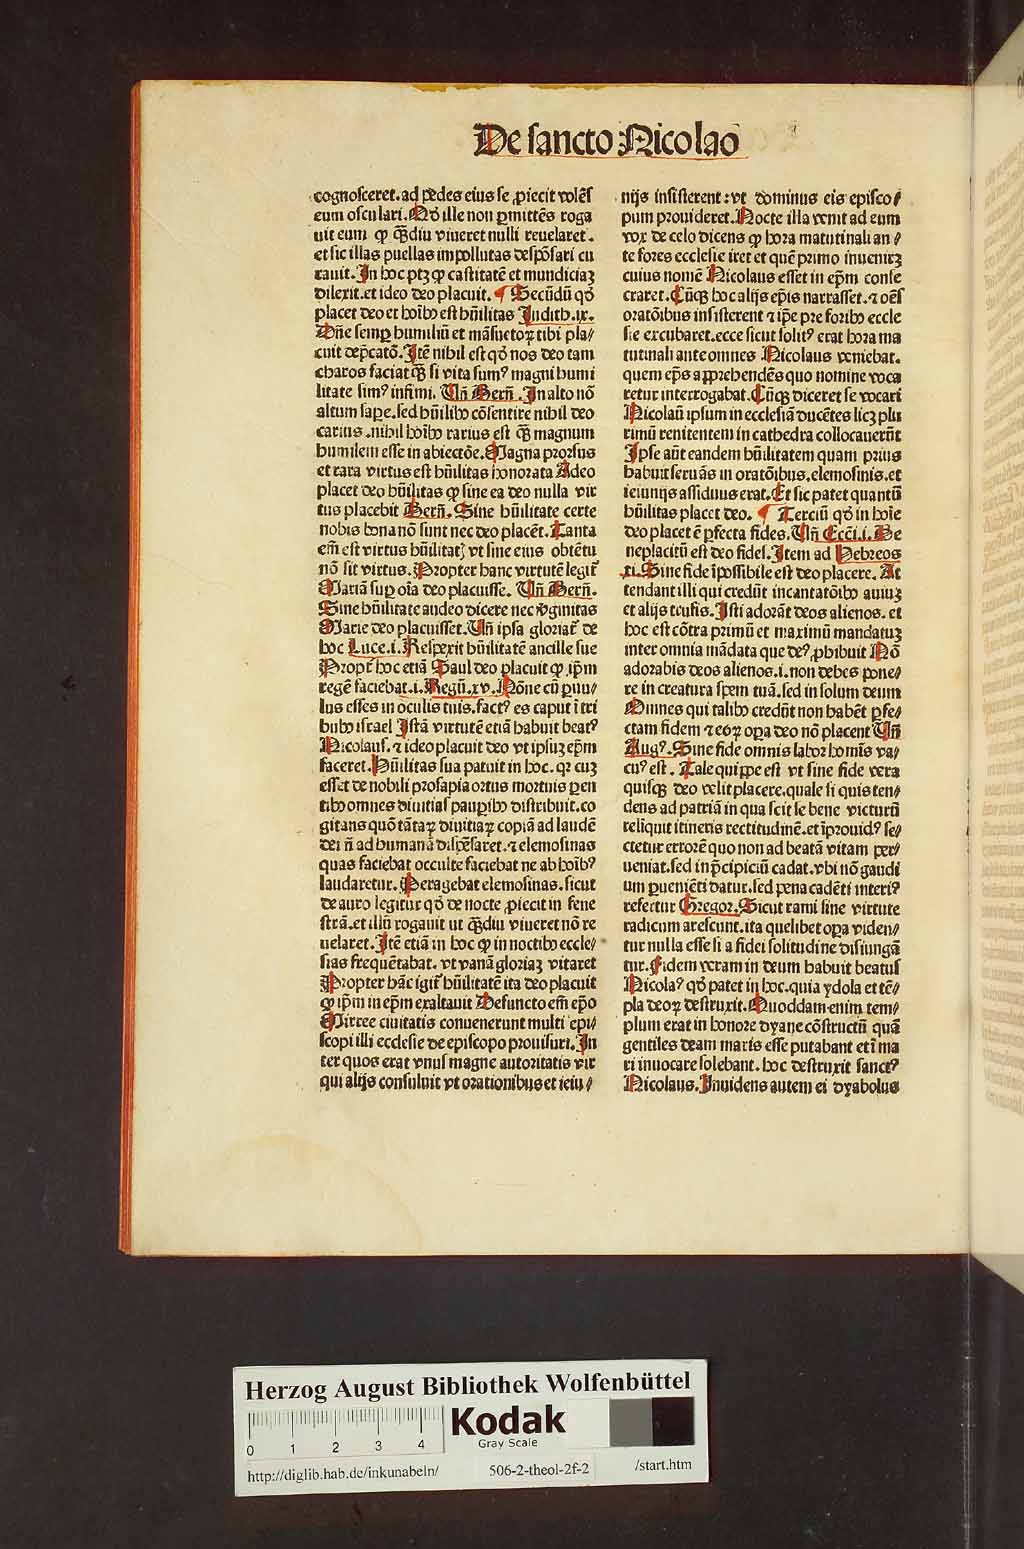 De sancto Nicolao
cognosceret. ad pedes eius se ꝓiecit volẽs
eum osculari. Nõ ille non ꝑmittẽs roga
uit eum ꝙ q̄ᷓdiu viueret nulli reuelaret.
et sic illas puellas impollutas despõsari cu
rauit. In hoc ptꝫ ꝙ castitatẽ et mundiciaꝫ
dilexit. et ideo deo placuit. ¶ Secũdũ qđ
placet deo et hoĩbꝰ est hũilitas Judith .ix.
Dñe semꝑ humiliũ et mãsuetoꝝ tibi pla⸗
cuit dep̃catõ. Itẽ nibil est qđ nos deo tam
charos faciat q̄ᷓ si vita sumꝰ magni humi
litate simꝰ infimi. Vñ Berñ. In alto nõ
altum sape. sed hũilibꝰ cõsentire nihil deo
carius. nihil hoĩbꝰ rarius est q̄ᷓ magnum
humilem esse in abiectõe. Magna prorsus
et rara virtus est hũilitas honorata Adeo
placet deo hũilitas ꝙ sine ea deo nulla vir
tus placebit Berñ. Sine hũilitate certe
nobis bona nõ sunt nec deo placẽt. Tanta
em̃ est virtus hũilitatꝭ vt sine eius obtẽtu
nõ sit virtus. Propter hanc virtutẽ legit᷑
Mariã suꝑ oĩa deo placuisse. Vñ Berñ.
Sine hũilitate audeo dicere nec v̾ginitas
Marie deo placuisset. Vñ ipsa gloriat᷑ de
hoc Luce .i. Respexit hũilitatẽ ancille sue
Propt̾ hoc etiã Saul deo placuit ꝙ ip̃m
regẽ faciebat .i. Regũ .xv. Nõne cũ ꝑuu⸗
lus esses in oculis tuis. factꝰ es caput ĩ tri
bubꝰ israel Istã virtutẽ etiã habuit beatꝰ
Nicolaus. ⁊ ideo placuit deo vt ipsuꝫ ep̃m
faceret. Hũilitas sua patuit in hoc. qꝛ cuꝫ
esset de nobili prosapia ortus mortuis paren
tibꝰ omnes diuitias pauꝑibꝰ distribuit. co
gitans quõ tãtaꝝ diuitiaꝝ copiã ad laudẽ
dei ñ ad humanã dispẽsaret. ⁊ elemosinas
quas faciebat occulte faciebat ne ab hoĩbꝰ
laudaretur. Peragebat elemosinas. sicut
de auro legitur qđ de nocte ꝓiecit in fene
strã. et illũ rogauit ut q̄ᷓdiu viueret nõ re
uelaret. Itẽ etiã in hoc ꝙ in noctibꝰ eccle⸗
sias frequẽtabat. vt vanã gloriaꝫ vitaret
Propter hãc igit᷑ hũilitatẽ ita deo placuit
ꝙ ip̃m in ep̃m exaltauit Defuncto em̃ ep̃o
Mirree ciuitatis conuenerunt multi epi⸗
scopi illi ecclesie de episcopo prouisuri. In
ter quos erat vnus magne autoritatis vir
qui alijs consuluit vt orationibus et ieiu⸗
nijs insisterent : vt dominus eis episco⸗
pum prouideret. Nocte illa venit ad eum
vox de celo dicens ꝙ hora matutinali an⸗
te fores ecclesie iret et quẽ primo inueniꝫ
cuius nomẽ Nicolaus esset in ep̃m conse
craret. Cũqꝫ hoc alijs ep̃is narrasset. ⁊ oẽs
oratõibus insisterent ⁊ ip̃e pre foribꝰ eccle
sie excubaret. ecce sicut solitꝰ erat hora ma
tutinali ante omnes Nicolaus veniebat.
quem ep̃s apprehendẽs quo nomine voca
retur interrogabat. Cũqꝫ diceret se vocari
Nicolaũ ipsum in ecclesiã ducẽtes licꝫ plu
rimũ renitentem in cathedra collocauerũt
Ipse aũt eandem hũilitatem quam prius
habuit seruãs in oratõibus. elemosinis. et
ieiunijs assiduus erat. Et sic patet quantũ
hũilitas placet deo. ¶ Terciũ qđ in hoĩe
deo placet ẽ ꝑfecta fides. Vñ Eccĩ .i. Be
neplacitũ est deo fides. Item ad Hebreos
.xi. Sine fide ĩpossibile est deo placere. At
tendant illi qui credũt incantatõibꝰ auiuꝫ
et alijs teufis. Isti adorãt deos alienos. et
hoc est cõtra primũ et maximũ mandatuꝫ
inter omnia mãdata que deꝰ ꝓhibuit Nõ
adorabis deos alienos .i. non debes pone⸗
re in creatura spem tuã. sed in solum deum
Omnes qui talibꝰ credũt non habẽt ꝑfe⸗
ctam fidem ⁊ eoꝝ oꝑa deo nõ placent Vñ
Augꝰ. Sine fide omnis labor hominis va⸗
cuꝰ est. Tale quippe est vt sine fide vera
quisqꝫ deo velit placere. quale si quis ten⸗
dens ad patriã in qua scit se bene victurũ
relinquit itineris rectitudinẽ. et ĩprouidꝰ se⸗
ctetur errorẽ quo non ad beatã vitam per⸗
ueniat. sed in p̃cipiciũ cadat. vbi nõ gaudi
um ꝑueniẽti datur. sed pena cadẽti interiꝰ
refertur Gregor. Sicut rami sine virtute
radicum arescunt. ita quelibet oꝑa viden⸗
tur nulla esse si a fidei solitudine disiungã
tur. Fidem veram in deum habuit beatus
Nicolaꝰ qđ patet in hoc. quia ydola et tẽ⸗
pla deoꝝ destruxit. Quoddam enim tem⸗
plum erat in honore dyane cõstructũ quã
gentiles deam maris esse putabant et ĩ ma
ri inuocare solebant. hoc destruxit sanctꝰ
Nicolaus. Inuidens autem ei dyabolus
Herzog August Bibliothek Wolfenbüttel
0 1 2 3 4
Kodak
Gray Scale
http://diglib.hab.de/inkunabeln/ 506-2-theol-2f-2 /start.htm